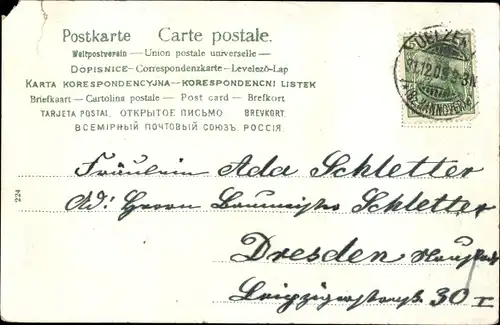 Postkarte Carte postale.
Weltpostverein — Union postale universelle —
DOPISNICE — Correspondenzkarte — Levelező-Lap
KARTA KORESPONDENCYJNA — KORESPONDENCNI LISTEK
Briefkaart — Cartolina postale — Post card — Brefkort
TARJETA POSTAL. ОТКРЫТОЕ ПИСЬМО BREVKORT.
ВСЕМІРНЫЙ ПОЧТОВЫЙ СОЮЗЪ. РОССІЯ.
UELZEN
HANNOVER
Fräulein Ada Schletter
Ad: Herrn Baumeister Schletter
Dresden Neustadt
Leipzigerstrasse 30 I
224